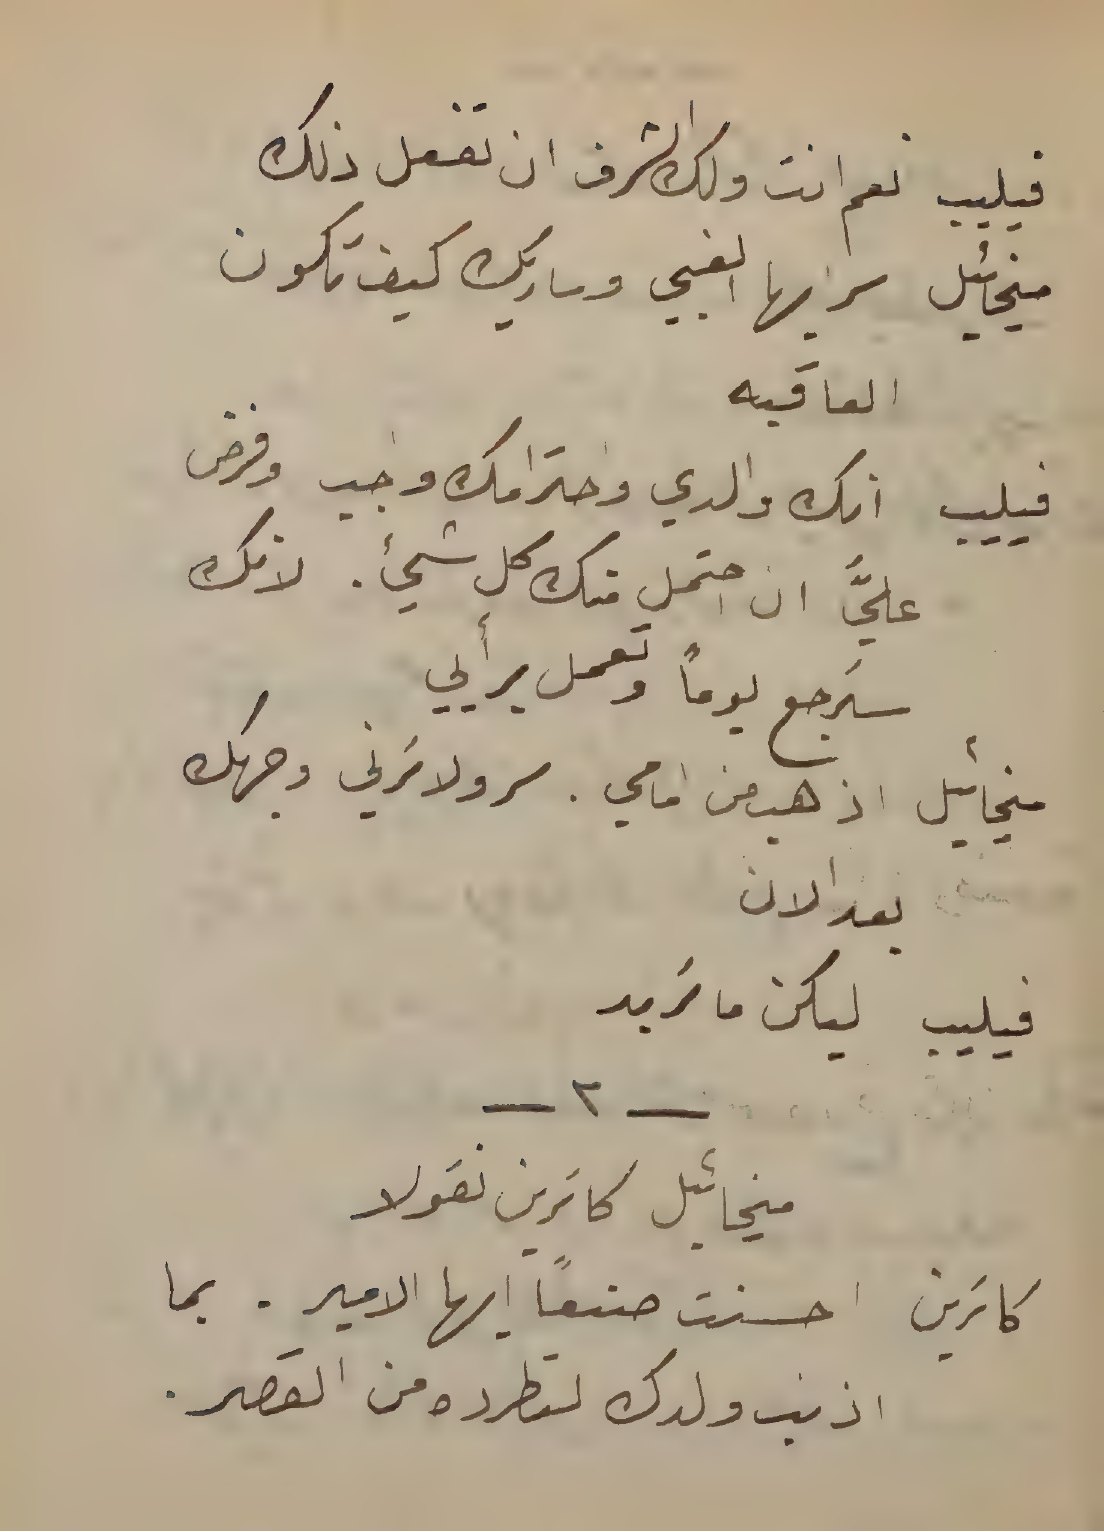 فيليب نعم انت ولك الشرف ان تفعل ذلك
ميخائيل سر ايها الغبي وساريك كيف تكون
العاقبه
فيليب انك والدي واحترامك واجب وفرض
عليَّ ان احتمل منك كل شيئ . لانك
سترجع يوماً وتعمل برأيي
ميخائيل اذهب من امامي . سر ولا ترني وجهك
بعد الان
فيليب ليكن ما تريد
— ٢ —
ميخائيل كاترين نقولا
كاترين احسنت صنعاً ايها الامير . بما
اذنب ولدك لتطرده من القصر .